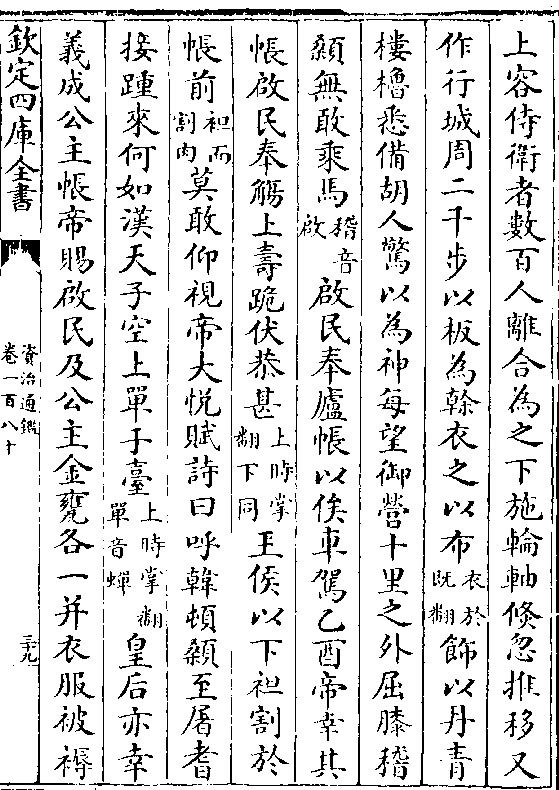 上容侍衛者數百人離合為之下施輪軸倏忽推移又
作行城周二千步以板為榦衣之以布衣於既翻飾以丹青
樓櫓悉備胡人驚以為神每望御營十里之外屈膝稽
顙無敢乘馬稽音啟啟民奉廬帳以俟車駕乙酉帝幸其
帳啟民奉觴上壽跪伏恭甚上時掌翻下同王侯以下袒割於
帳前袒而割肉莫敢仰視帝大悅賦詩曰呼韓頓顙至屠耆
接踵來何如漢天子空上單于臺上時掌翻單音蟬皇后亦幸
義成公主帳帝賜啟民及公主金甕各一并衣服被褥
欽定四庫全書
資治通鑑
卷一百八十
三十九